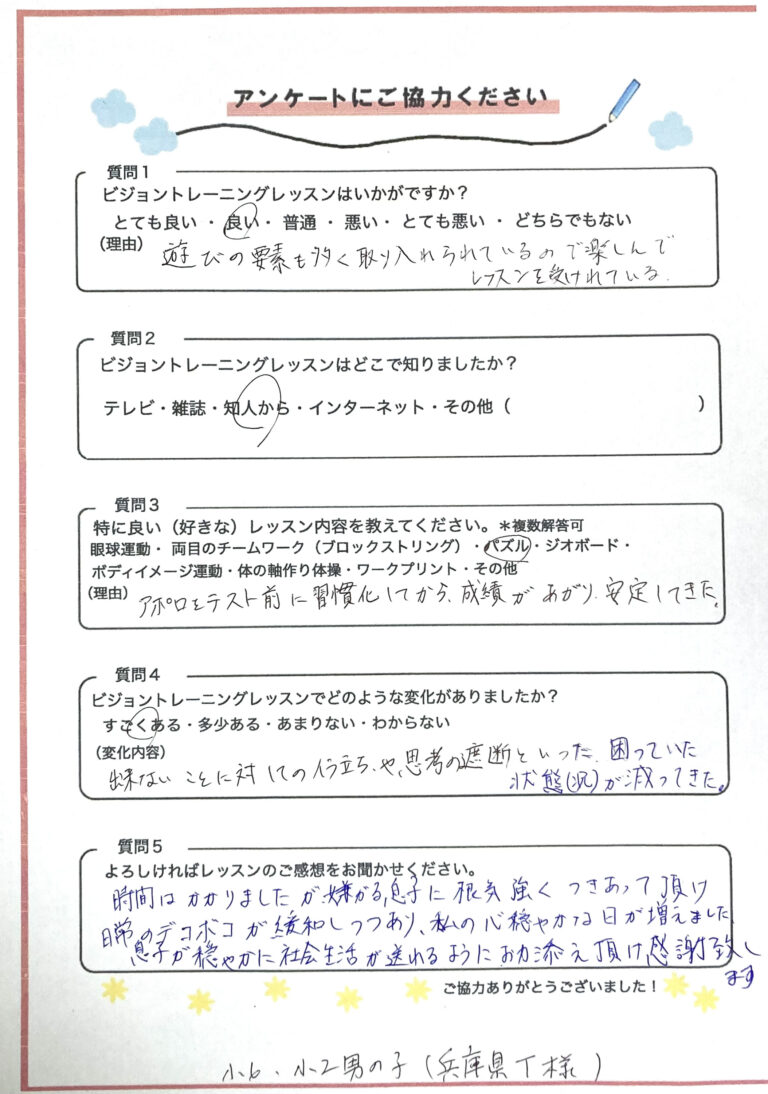 アンケートにご協力ください
質問1
ビジョントレーニングレッスンはいかがですか?
とても良い ・ 良い ・ 普通 ・ 悪い ・ とても悪い ・ どちらでもない
(理由)
遊びの要素も多く取り入れられているので楽しんで
レッスンを受けれている.
質問2
ビジョントレーニングレッスンはどこで知りましたか?
テレビ・雑誌・知人から・インターネット・その他 ( )
質問3
特に良い(好きな)レッスン内容を教えてください。*複数解答可
眼球運動・ 両目のチームワーク(ブロックストリング)・パズル・ジオボード・
ボディイメージ運動・体の軸作り体操・ワークプリント・その他
(理由)
アポロをテスト前に習慣化してから、成績があがり、安定してきた。
質問4
ビジョントレーニングレッスンでどのような変化がありましたか?
すごくある・多少ある・あまりない・わからない
(変化内容)
出来ないことに対しての イラ立ち、や、思考の遮断といった、困っていた
状態(況)が減ってきた。
質問5
よろしければレッスンのご感想をお聞かせください。
時間はかかりましたが嫌がる息子に根気強くつきあって頂け
日常のデコボコが緩和しつつあり、私の心穏やかな日が増えました
息子が穏やかに社会生活が送れるようにお力添え頂け感謝致し
ます
ご協力ありがとうございました!
小6・小2男の子(兵庫県T様)